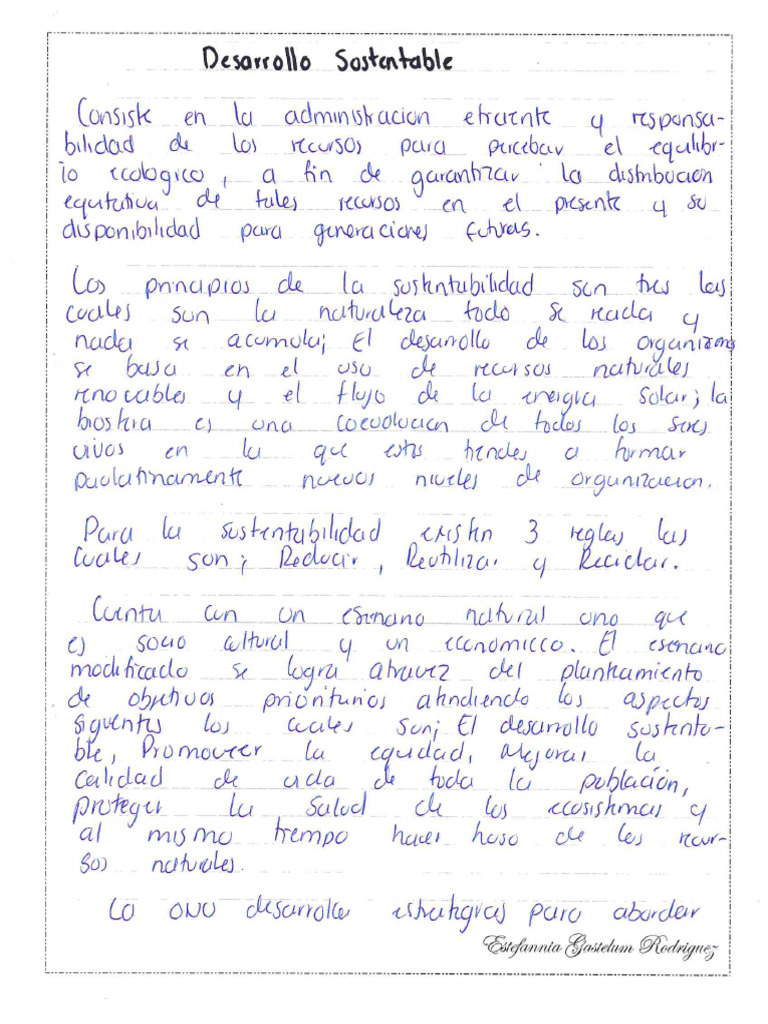 Desarrollo Sostentable
Consiste en la administracion eficiente y responsa-
bilidad de los recursos para percebar el equlibr-
io ecologico, a fin de garantizar la distribucion
equitativa de tales recursos en el presente y su
disponibilidad para generaciones futuras.
Los principios de la sustentubilidad son tres las
cuales son la naturaleza todo se reada y
nada se acomula; El desarollo de los organizmos
se basa en el uso de recursos naturales
renovables y el flujo de la energia solar; la
biosfera es una coevolucion de todos los seres
vivos en la que estas tiendes a formar
paulatinamente nuevos niveles de organizacion.
Para la sustentubilidad existen 3 reglas las
cuales son; Reducir, Reutilizar y Reciclar.
Cuenta con un esenario natural uno que
es socio cultural y un economicco. El esenario
modificado se logra atravez del planteamiento
de objetivos prioriturios atendiendo los aspectos
siguentes los cuales son; El desarrollo sustenta-
ble, Promoveer la equidad, Mejorar la
calidad de vida de toda la población,
proteger la salud de los ecosistemas y
al mismo trempo hacer hoso de los recur-
sos naturales.
La ONU desarrolla estrategias para abordar
Estefannia Gastelum Rodriguez